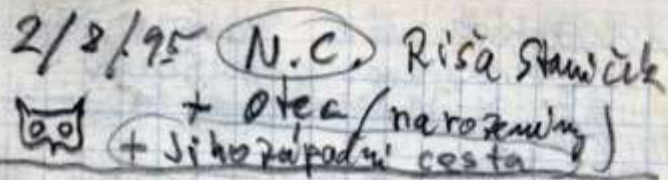 2/8/95 N.C. Ríša Staníček
+ otec (narozeniny)
+ Jihozápadní cesta